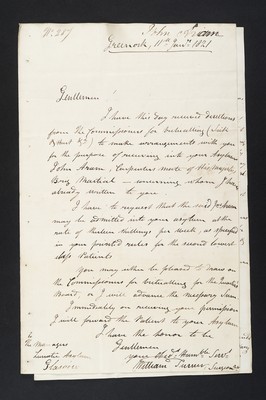 No. 257
John Aram
Greenock, 11th Jany. 1821
Gentlemen
I have this day received directions
from the Commissioners for Victualling (Sick
& Hurt) to make arrangements with you
for the purpose of receiving into your Asylum
John Aram, Carpenters mate of His Majesty's
Brig Martial — concerning whom I have
already written to you.
I have to request that the said Jn. Aram
may be admitted into your asylum at the
rate of thirteen shillings per week, as specified
in your printed rules for the second lowest
class Patients
You may either be pleased to draw on
the Commissioners for Victualling for the Quarterly
Board, or I will advance the necessary Sum
Immediately on receiving your permission
I will forward the Patient to your Asylum
I have the honor to be
Gentlemen
your Obedt. Humble Servt.
William Turner, Surgeon
To
the Managers
Lunatic Asylum
Glasgow